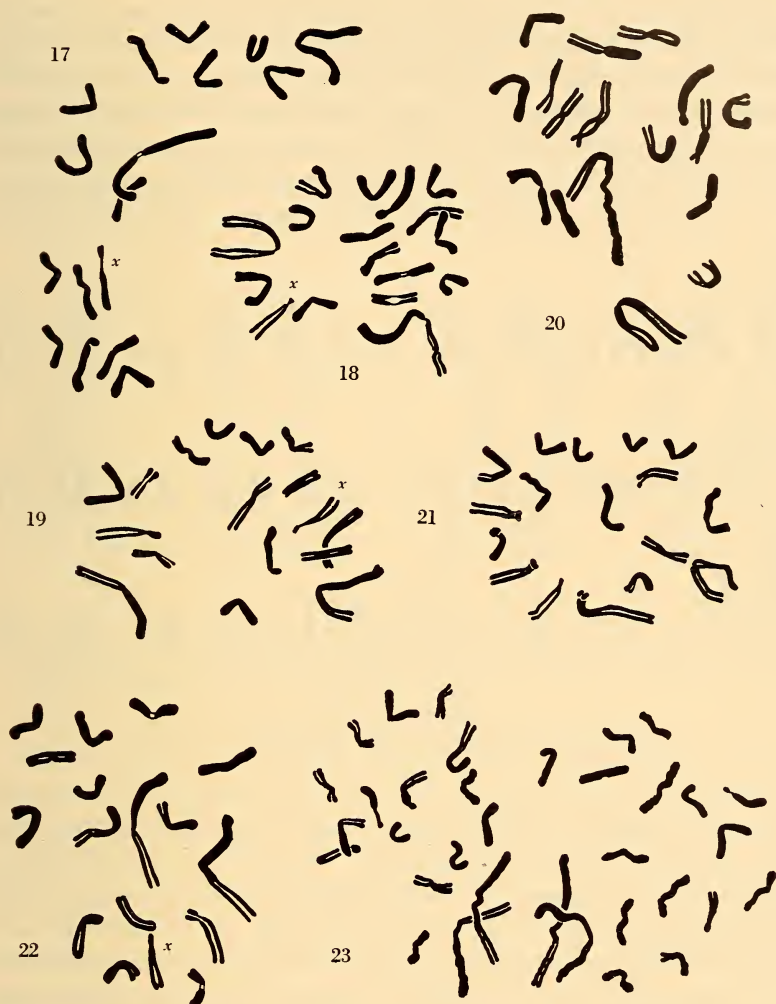 17
x
18
x
20
19
x
21
22
x
23